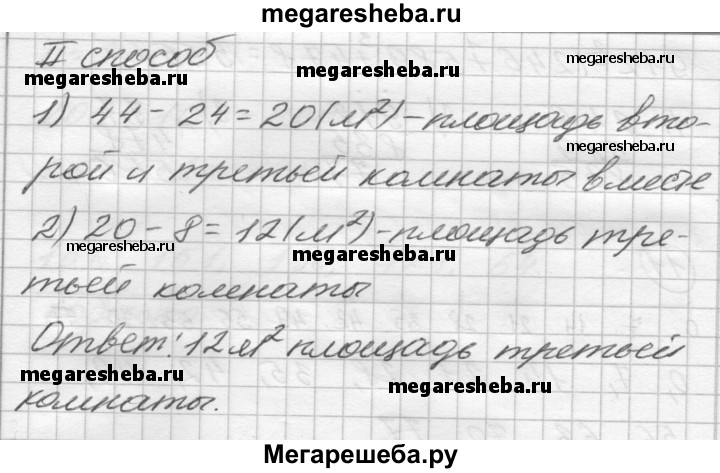 megaresheba.ru
II способ
megaresheba.ru megaresheba.ru megaresheba.ru
1) 44 - 24 = 20 (м²) - площадь вто-
megaresheba.ru
рой и третьей комнаты вместе
2) 20 - 8 = 12 (м²) - площадь тре-
megaresheba.ru megaresheba.ru
тьей комнаты
Ответ: 12 м² площадь третьей
megaresheba.ru megaresheba.ru
комнаты.
Мегарешеба.ру